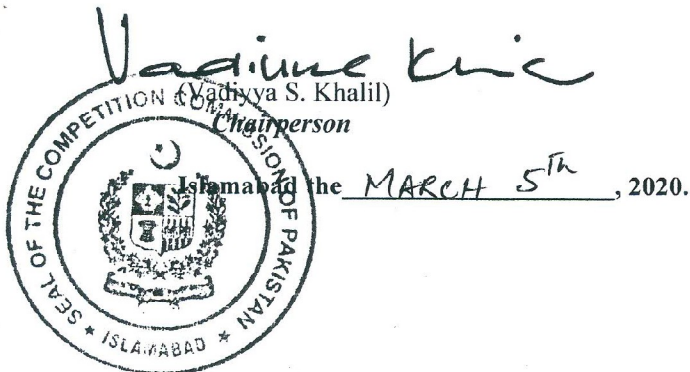 (Vadiyya S. Khalil)
Chairperson
Islamabad the MARCH 5Th, 2020.
SEAL OF THE COMPETITION COMMISSION OF PAKISTAN
* ISLAMABAD *